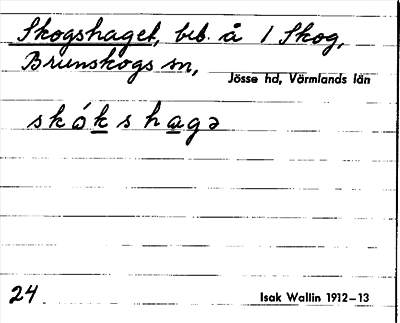 Skogshaget, beb. å 1 Skog,
Brunskogs sn,
Jösse hd, Värmlands län
skókshagə
24
Isak Wallin 1912–13